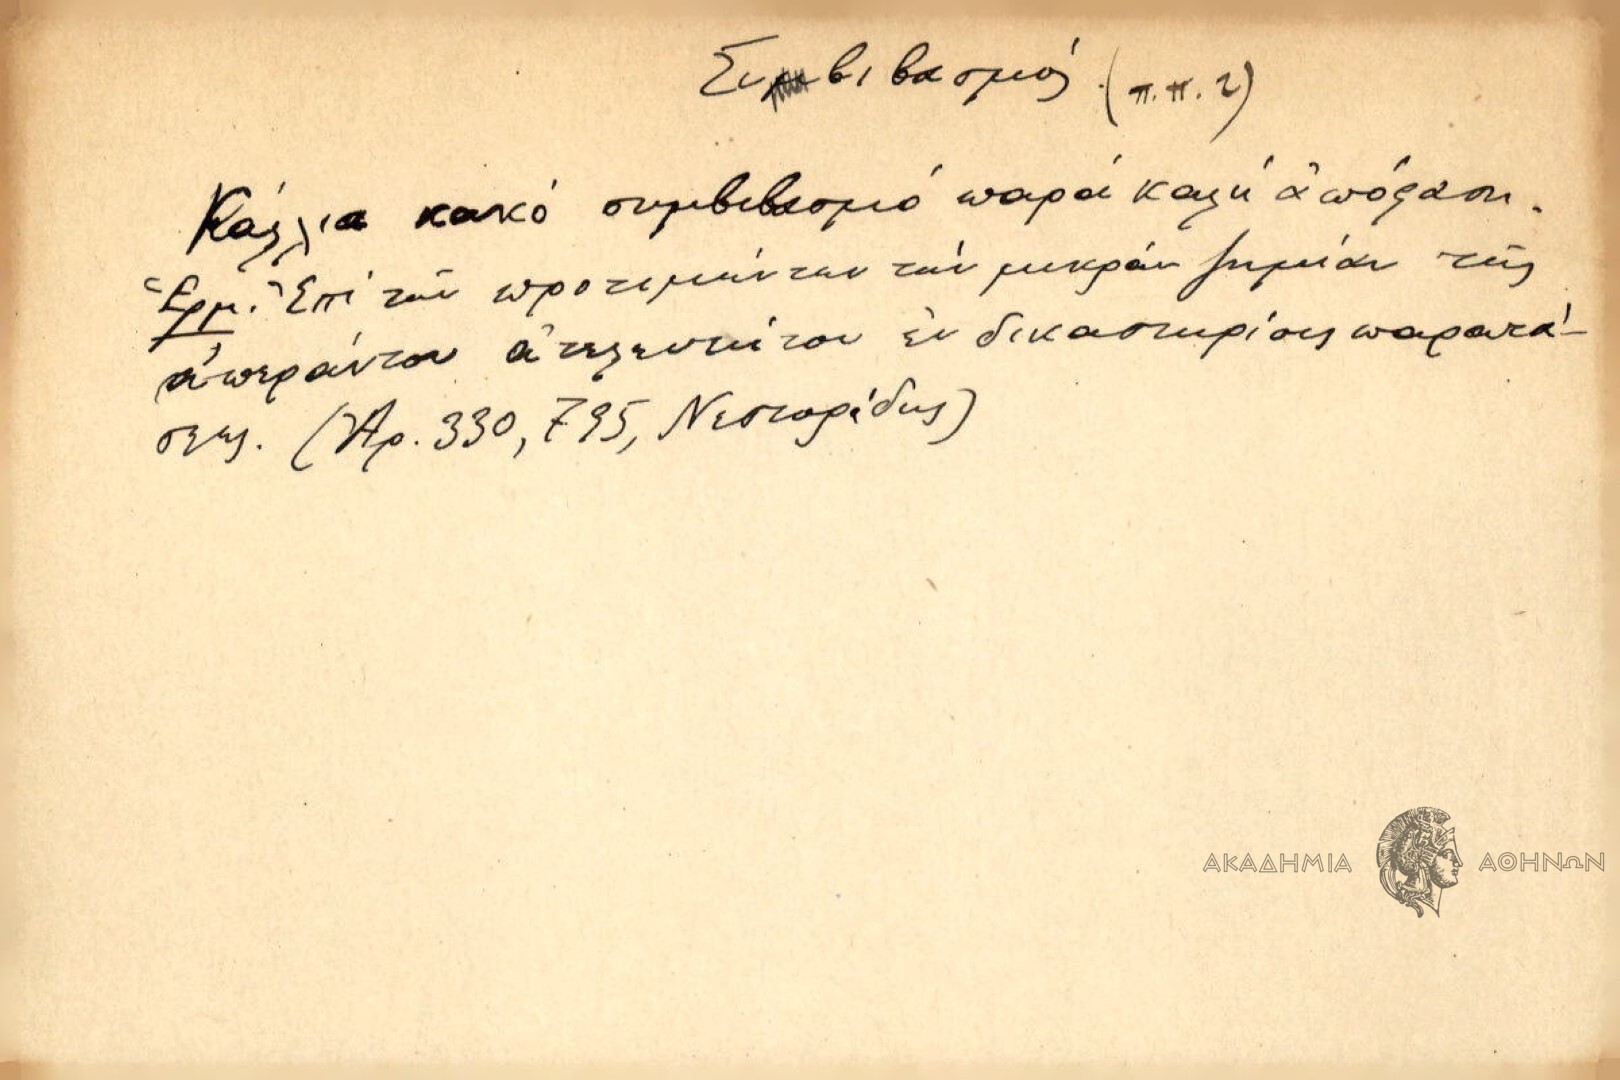 Συμβιβασμός (π.π. 2)
Κάλλια κακό συμβιβασμό παρά καλή ἀπόφασι.
Ἑρμ. Ἐπί τῶν προτιμώντων τήν μικράν ζημίαν τῆς
ἀπεράντου ἀτελευτήτου ἐν δικαστηρίοις παρατά-
σεως. (Ἀρ. 330, 795, Νεστορίδης)
ΑΚΑΔΗΜΙΑ ΑΘΗΝΩΝ